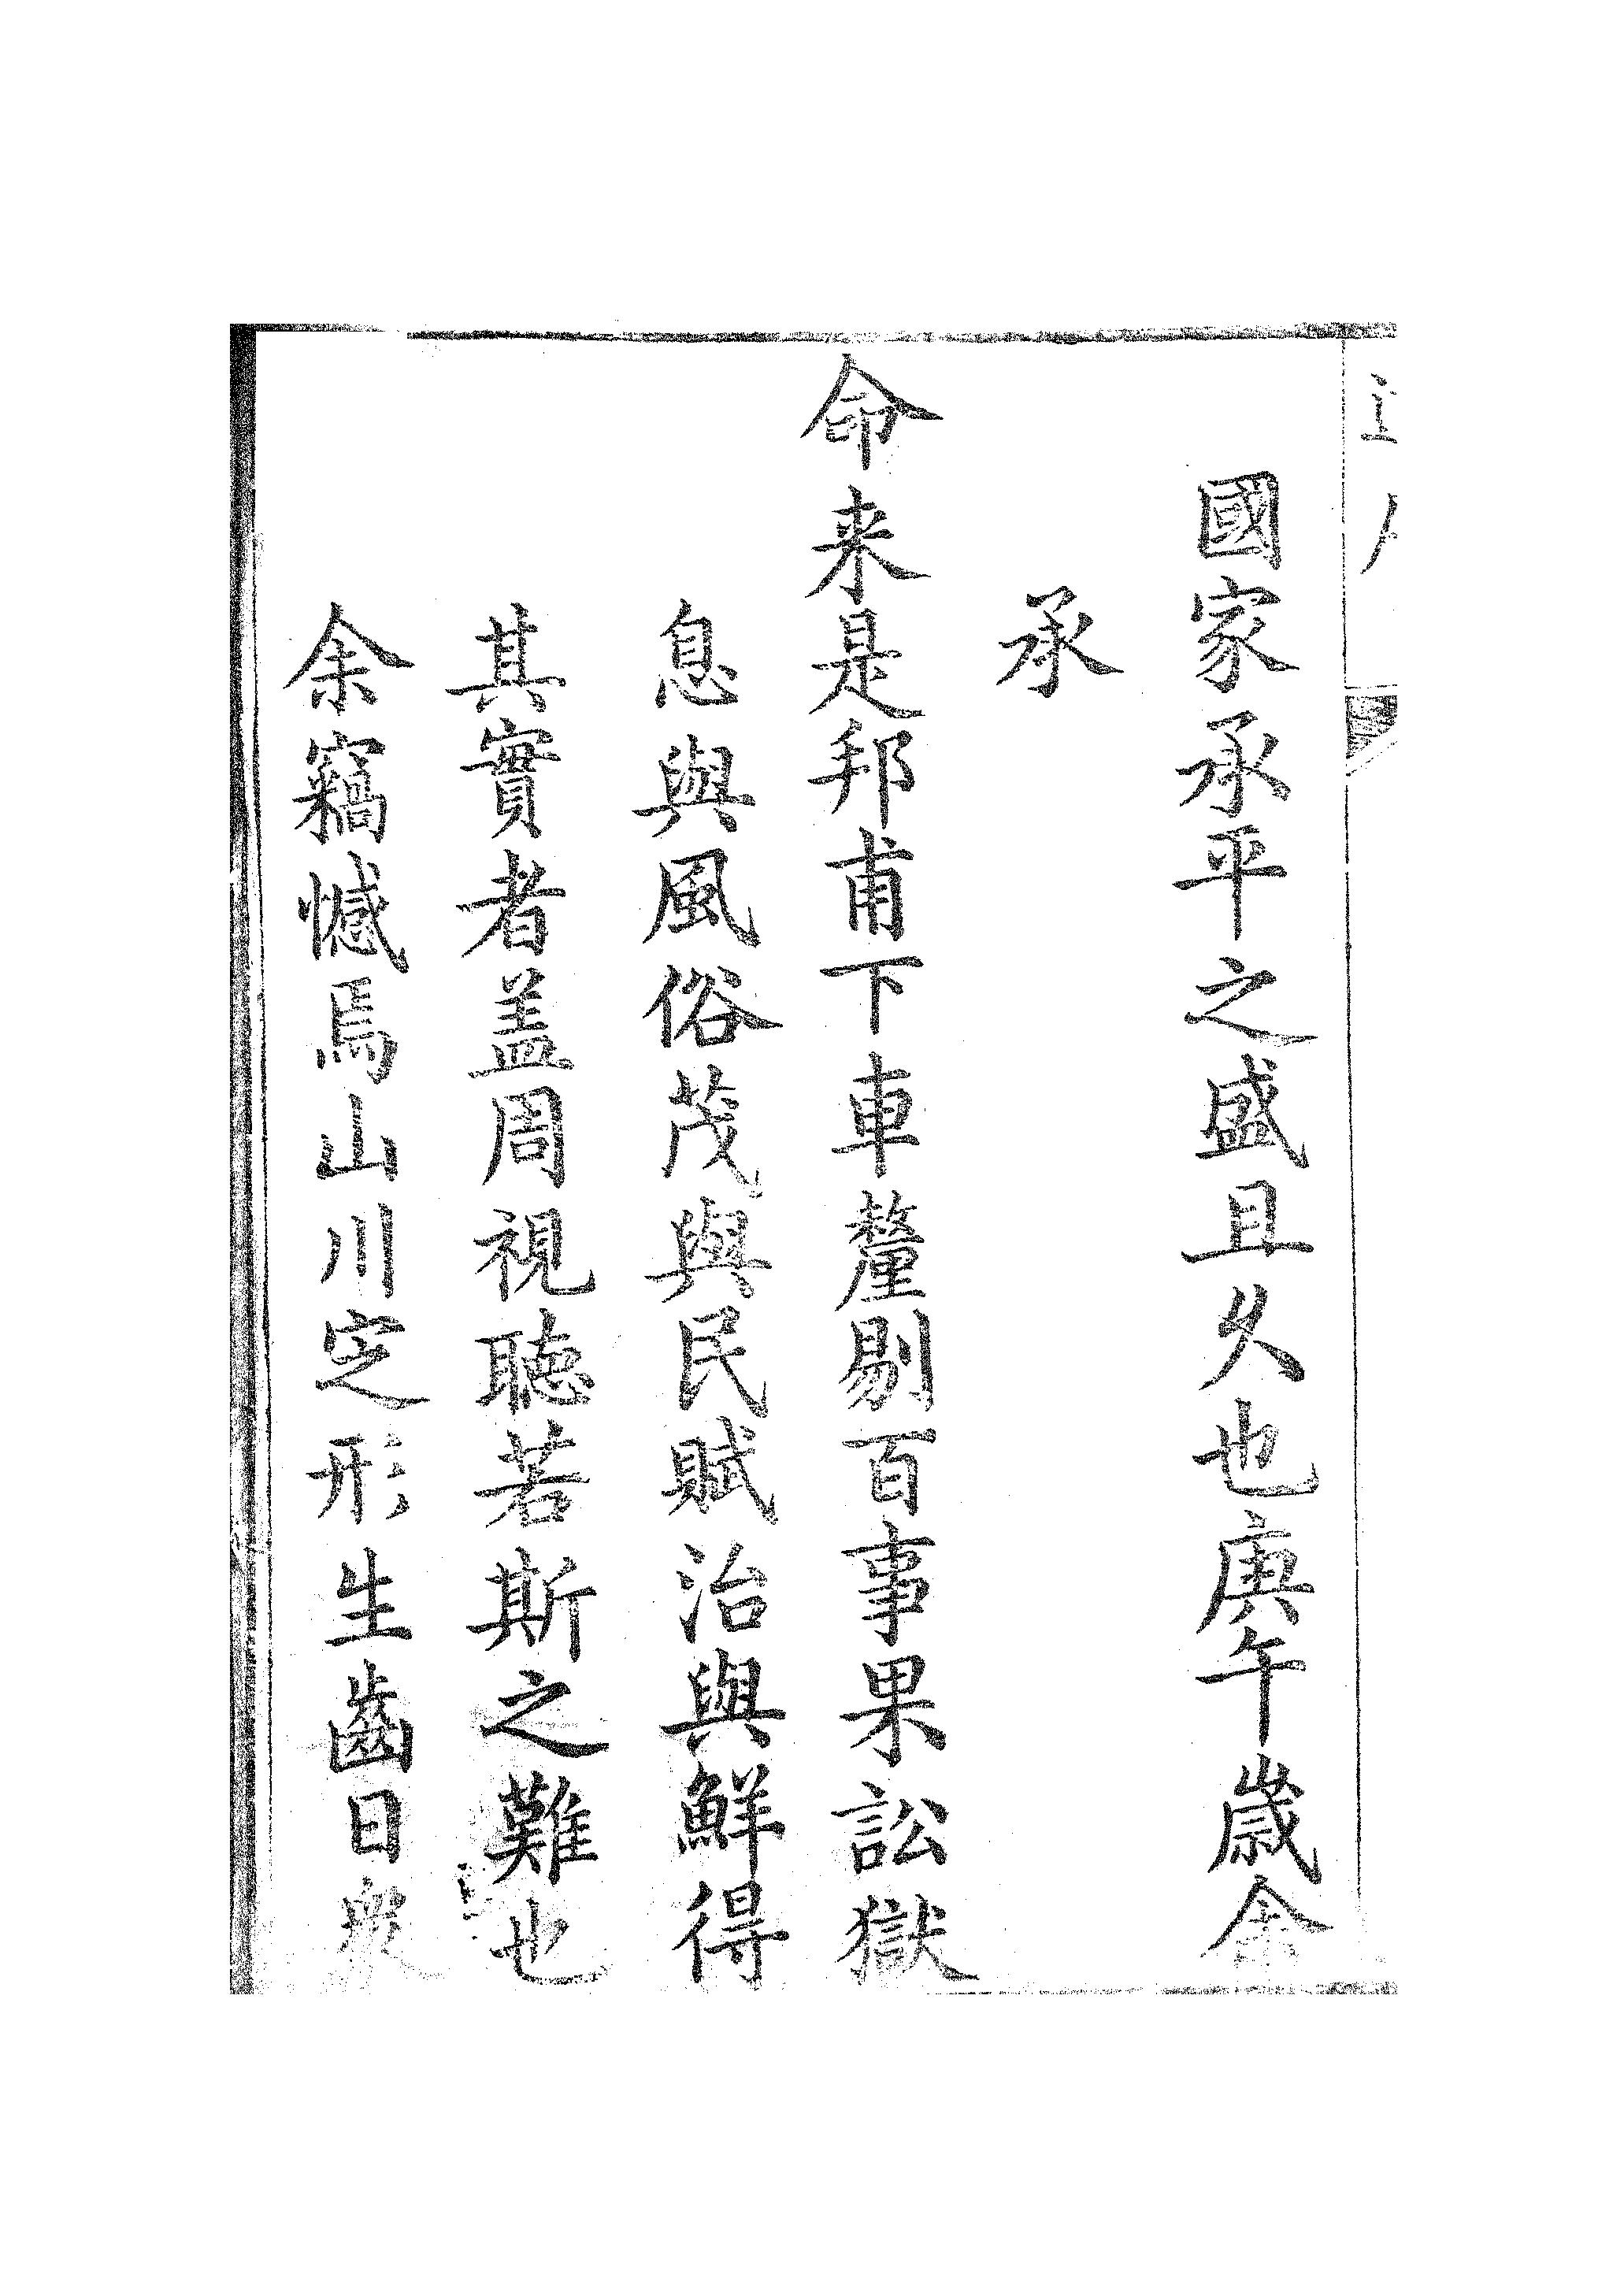 國家承平之盛且久也庚午歲余
承
命来是邦甫下車釐剔百事果訟獄
息與風俗茂與民賦治與鮮得
其實者盖周視聽若斯之難也
余竊憾焉山川定形生齒日衆